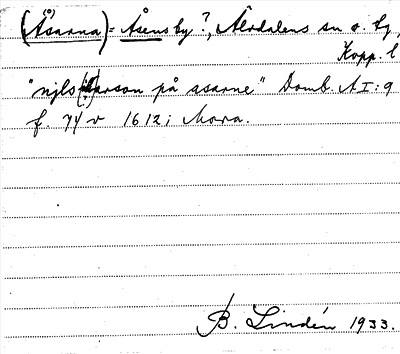 (Åsarna) = Åsensby?, Älvdalens sn o. tg,
Kopp. l
"njls larson på asarne" Domb. A I: 9
f. 74 v 1612; Mora.
B. Lindén 1933.